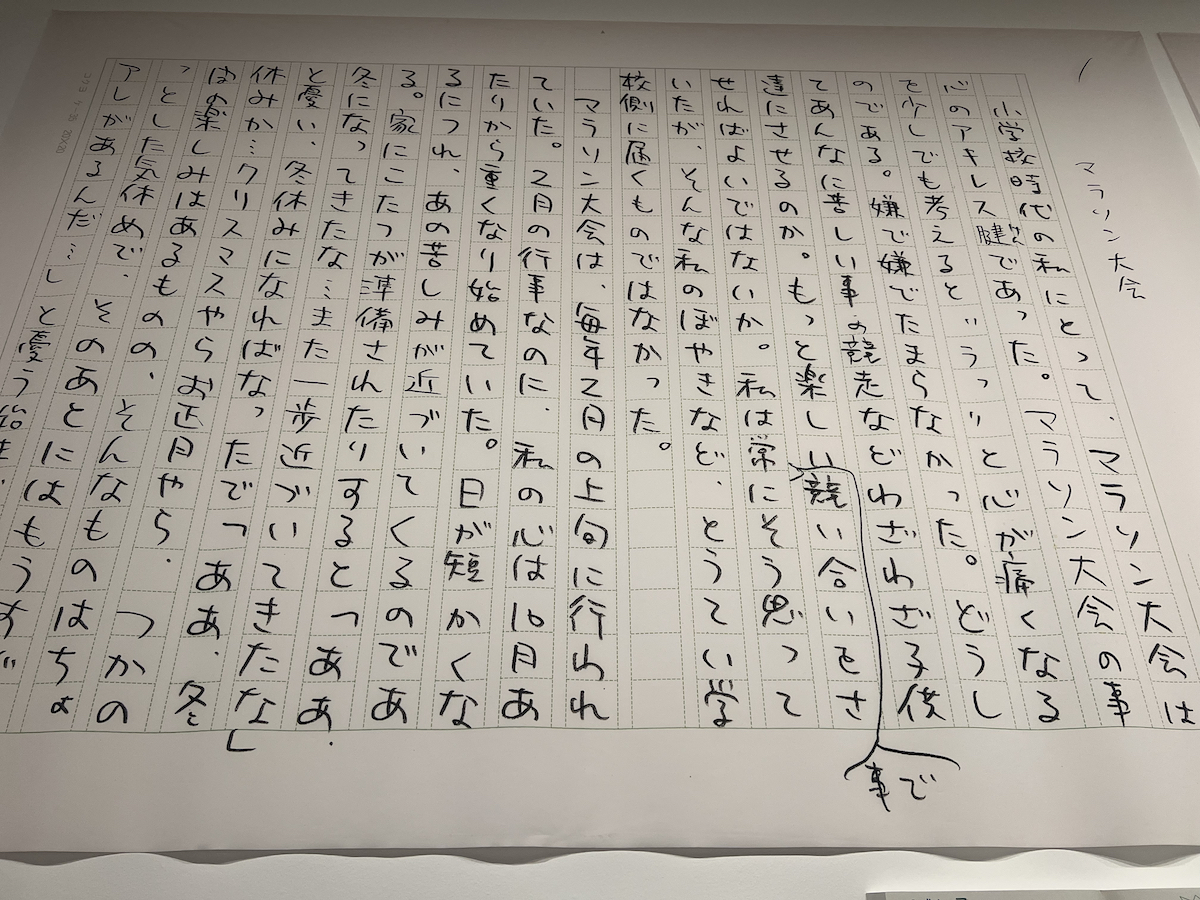 1
マラソン大会
小学校時代の私にとって、マラソン大会は
心のアキレス腱であった。マラソン大会の事
けん
を少しでも考えると〝うっ〟と心が痛くなる
のである。嫌で嫌でたまらなかった。どうし
てあんなに苦しい事の競走などわざわざ子供
達にさせるのか。もっと楽しい競い合いをさ
事で
せればよいではないか。私は常にそう思って
いたが、そんな私のぼやきなど、とうてい学
校側に届くものではなかった。
マラソン大会は、毎年2月の上旬に行われ
ていた。2月の行事なのに、私の心は10月あ
たりから重くなり始めていた。日が短かくな
るにつれ、あの苦しみが近づいてくるのであ
る。家にこたつが準備されたりすると「ああ、
冬になってきたな…また一歩近づいてきたな」
と憂い、冬休みになればなったで「ああ、冬
休みか…クリスマスやらお正月やら、つかの
まの楽しみはあるものの、そんなものはちょ
っとした気休めで、そのあとにはもうすぐ
アレがあるんだ…」と憂う始末